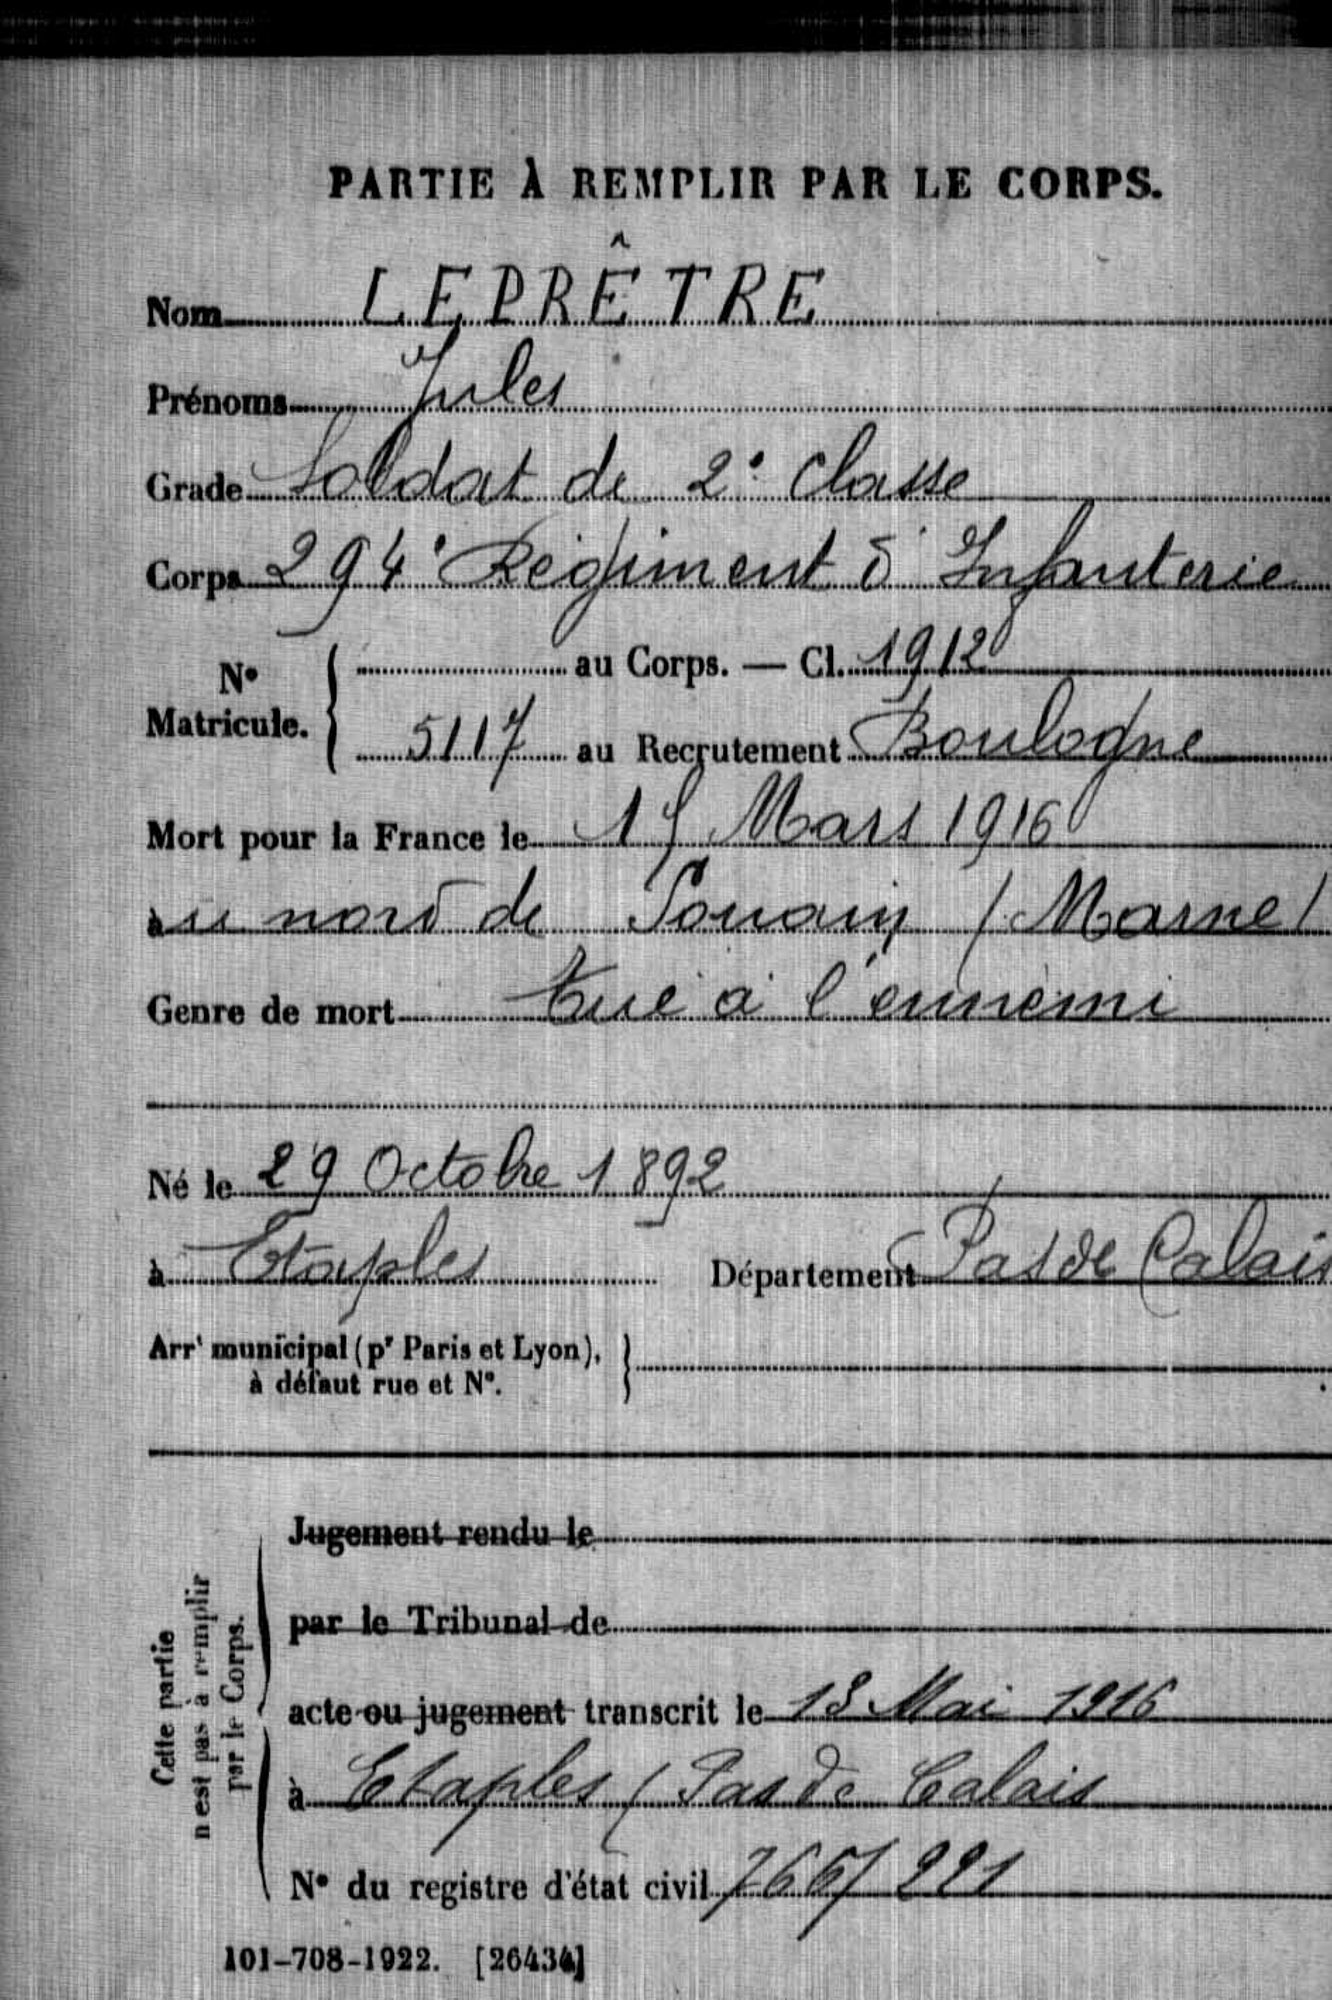 PARTIE À REMPLIR PAR LE CORPS.
Nom LEPRÊTRE
Prénoms Jules
Grade Soldat de 2e Classe
Corps 294e Régiment d'Infanterie
No Matricule. { au Corps. — Cl. 1912
5117 au Recrutement Boulogne
Mort pour la France le 15 Mars 1916
au nord de Souain (Marne)
Genre de mort tué à l'ennemi
Né le 29 Octobre 1892
à Etaples Département Pas de Calais
Arrt municipal (pr Paris et Lyon), }
à défaut rue et No.
Cette partie
n'est pas à remplir
par le Corps.
Jugement rendu le
par le Tribunal de
acte ou jugement transcrit le 18 Mai 1916
à Etaples (Pas de Calais
No du registre d'état civil 766/221
101-708-1922. [26434]